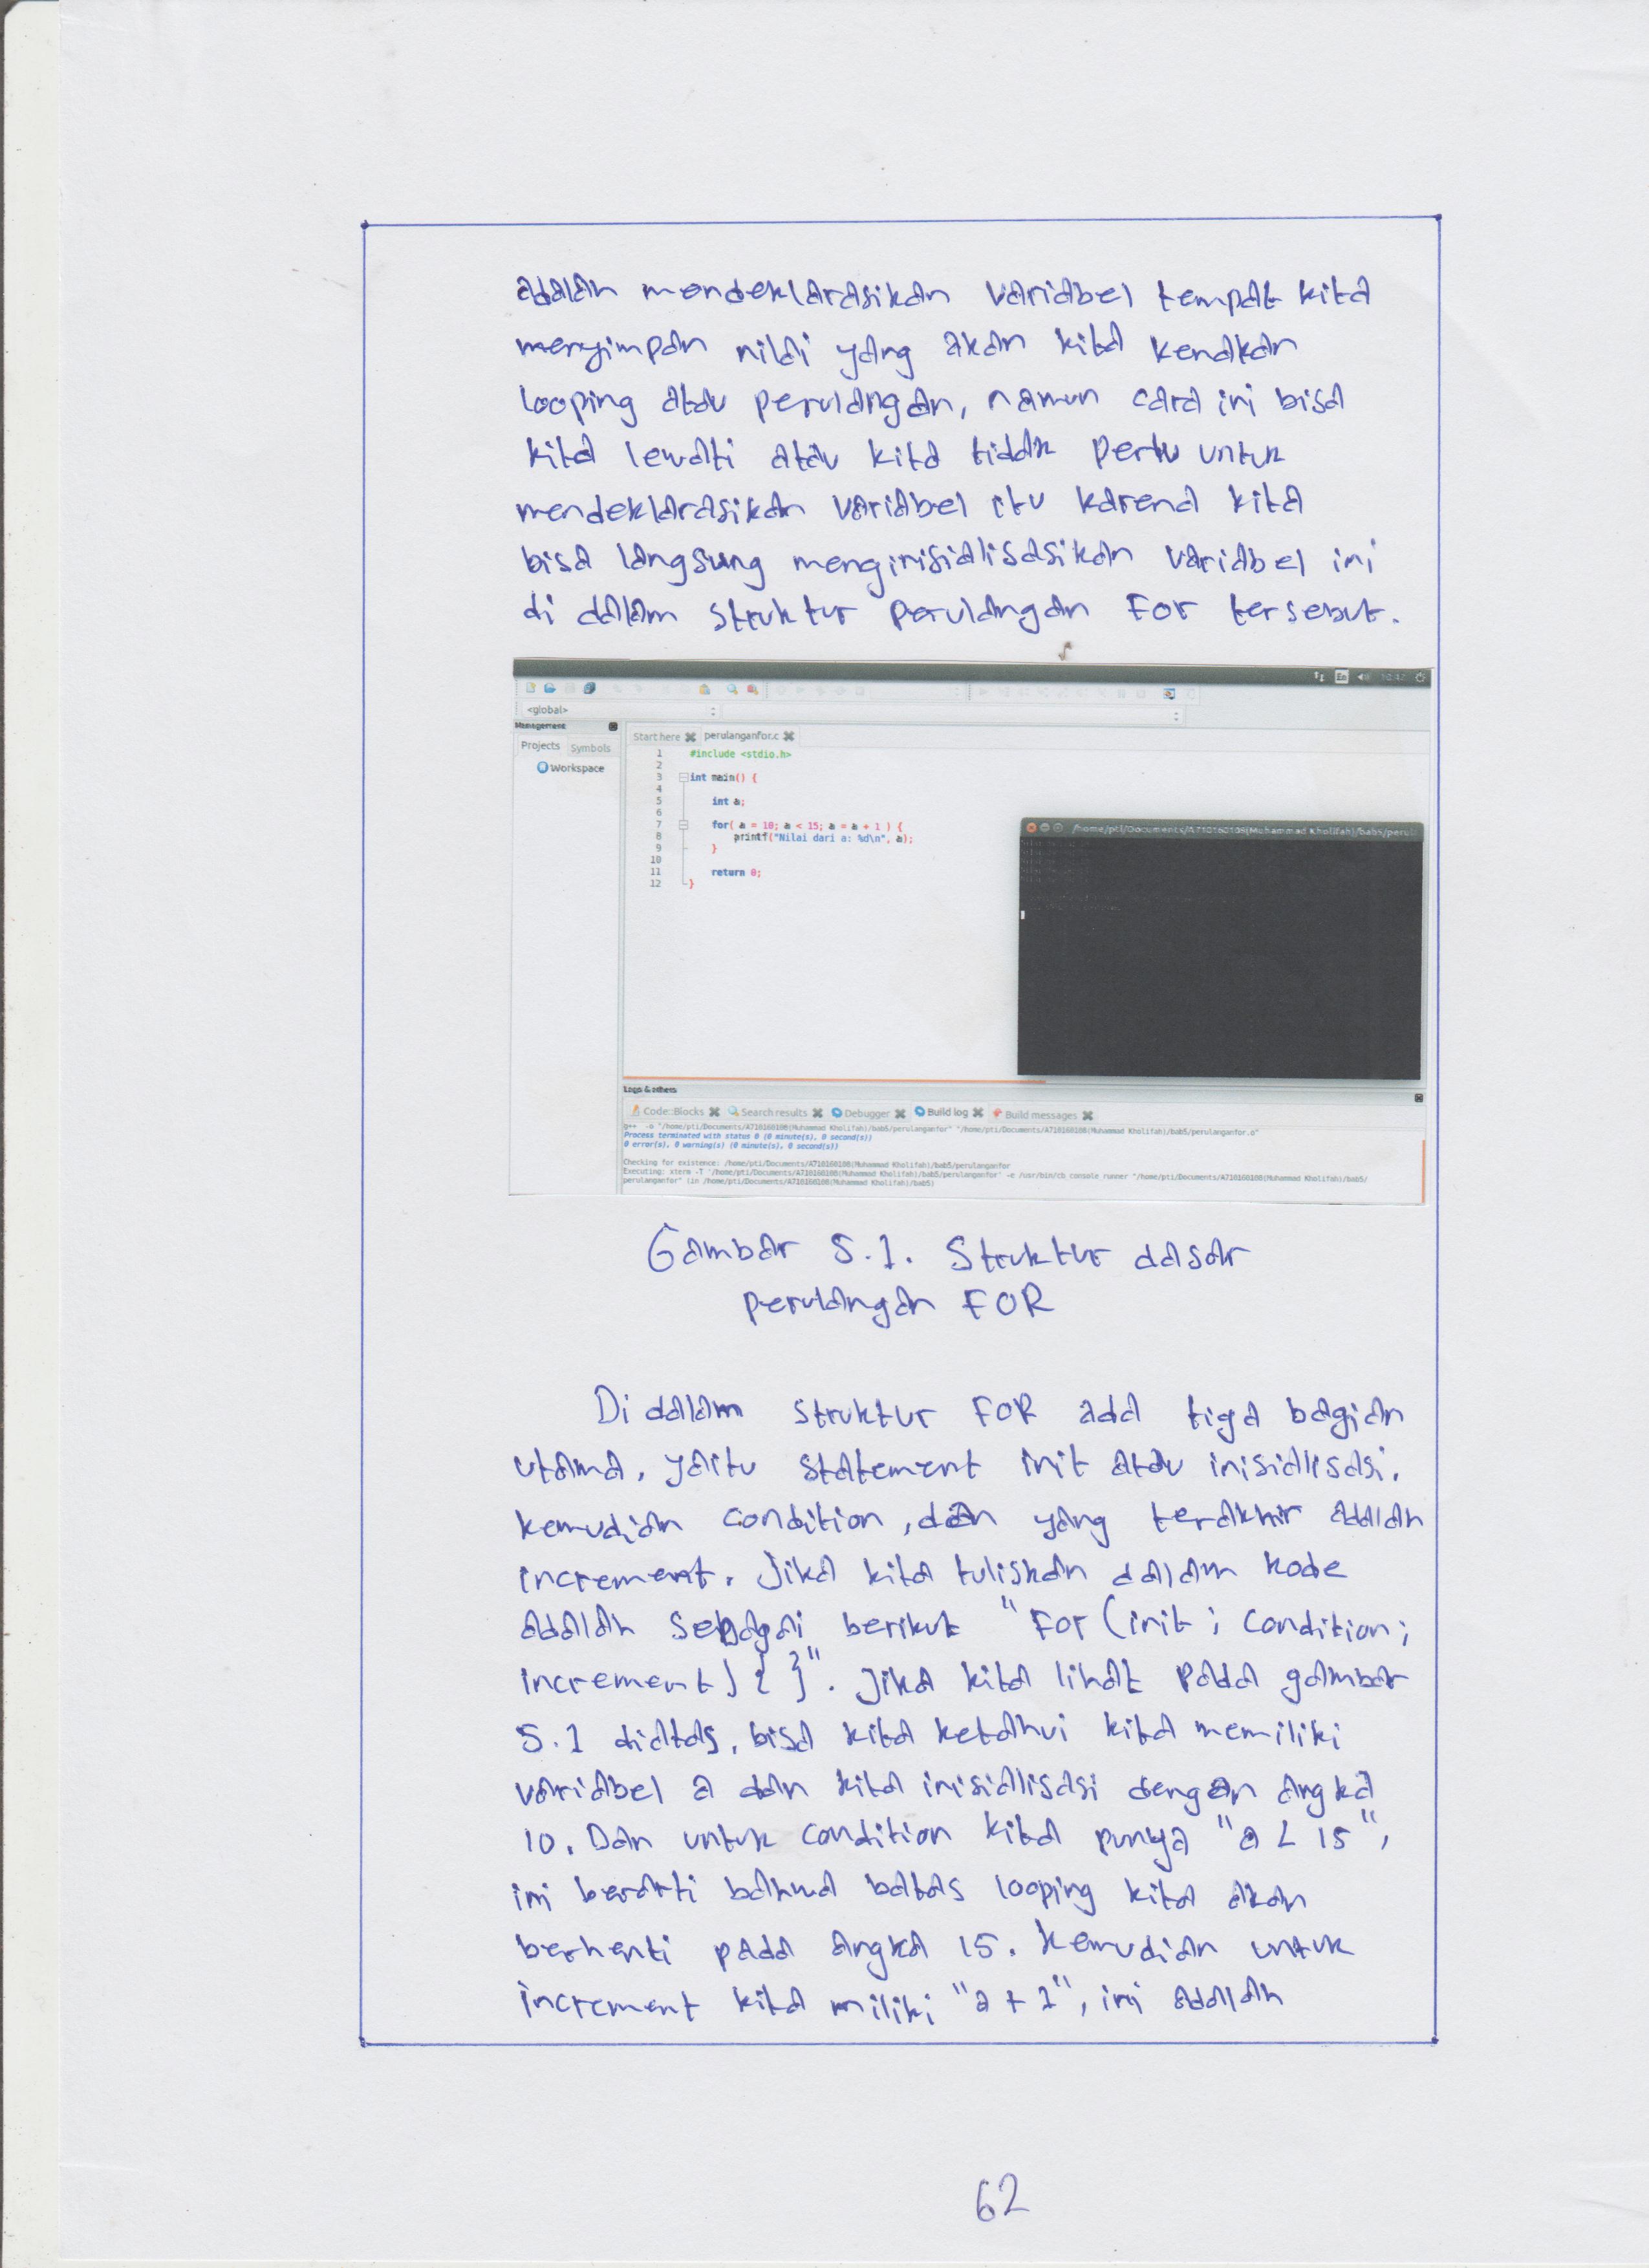 adalah mendeklarasikan variabel tempat kita
menyimpan nilai yang akan kita kenakan
looping atau perulangan, namun cara ini bisa
kita lewati atau kita tidak perlu untuk
mendeklarasikan variabel itu karena kita
bisa langsung menginisialisasikan variabel ini
di dalam struktur perulangan For tersebut.
En 10:47
<global>
Management
Projects Symbols
Workspace
Start here perulanganfor.c
1 #include <stdio.h>
2
3 int main() {
4
5 int a;
6
7 for( a = 10; a < 15; a = a + 1 ) {
8 printf("Nilai dari a: %d\n", a);
9 }
10
11 return 0;
12 }
/home/pti/Documents/A710160108(Muhammad Kholifah)/bab5/perul
Logs & others
Code::Blocks Search results Debugger Build log Build messages
g++ -o "/home/pti/Documents/A710160108(Muhammad Kholifah)/bab5/perulanganfor" "/home/pti/Documents/A710160108(Muhammad Kholifah)/bab5/perulanganfor.o"
Process terminated with status 0 (0 minute(s), 0 second(s))
0 error(s), 0 warning(s) (0 minute(s), 0 second(s))
Checking for existence: /home/pti/Documents/A710160108(Muhammad Kholifah)/bab5/perulanganfor
Executing: xterm -T '/home/pti/Documents/A710160108(Muhammad Kholifah)/bab5/perulanganfor' -e /usr/bin/cb_console_runner "/home/pti/Documents/A710160108(Muhammad Kholifah)/bab5/
perulanganfor" (in /home/pti/Documents/A710160108(Muhammad Kholifah)/bab5)
Gambar 5.1. Struktur dasar
perulangan FOR
Di dalam struktur FOR ada tiga bagian
utama, yaitu statement init atau inisialisasi,
kemudian condition, dan yang terakhir adalah
increment. Jika kita tuliskan dalam kode
adalah sebagai berikut "For (init; condition;
increment) { }". Jika kita lihat pada gambar
5.1 diatas, bisa kita ketahui kita memiliki
variabel a dan kita inisialisasi dengan angka
10. Dan untuk condition kita punya "a < 15",
ini berarti bahwa batas looping kita akan
berhenti pada angka 15. Kemudian untuk
increment kita miliki "a + 1", ini adalah
62